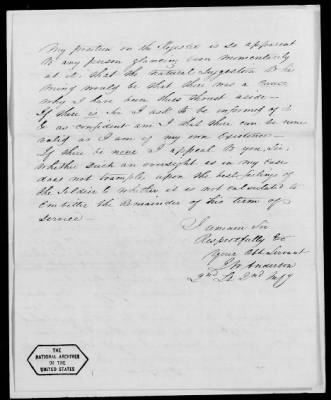 My position on the Register is so apparent
to any person glancing even momentarily
at it, that the natural suggestion to the
mind would be that there was a cause
why I have been thus thrust aside—
If there is so I ask to be informed of it
& as confident am I that there can be none
valid as I am of my own existence—
If there be none I appeal to you, Sir,
whether such an oversight as in my case
does not trample upon the best feelings of
the Soldier & whether it is not calculated to
embitter the remainder of his term of
service—
I remain Sir
Respectfully &c
Your Obt Servant
J W Anderson
2nd Lt 2nd Infy
THE
NATIONAL ARCHIVES
OF THE
UNITED STATES